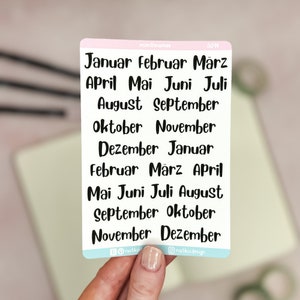 Januar Februar März
April Mai Juni Juli
August September
Oktober November
Dezember Januar
Februar März April
Mai Juni Juli August
September Oktober
November Dezember